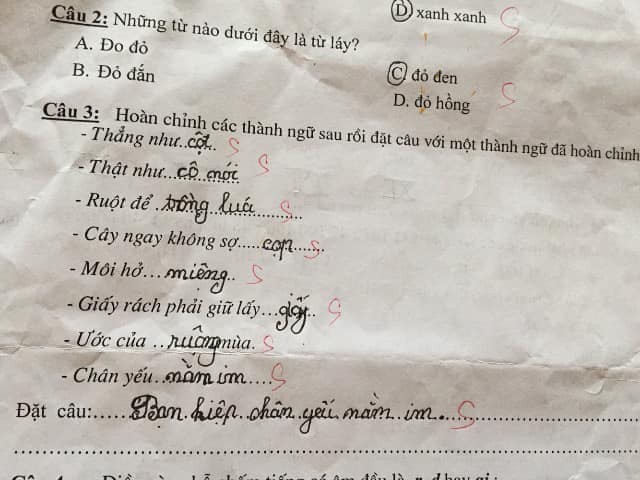 D xanh xanh S
Câu 2: Những từ nào dưới đây là từ láy?
A. Đo đỏ
B. Đỏ đắn
C đỏ đen S
D. đỏ hồng
Câu 3: Hoàn chỉnh các thành ngữ sau rồi đặt câu với một thành ngữ đã hoàn chỉnh
- Thẳng như..cột.. S
- Thật như...cô mói S
- Ruột để ..trồng luá........ S
- Cây ngay không sợ.....cọn..... S
- Môi hở...miệng.. S
- Giấy rách phải giữ lấy...giấy.. S
- Ước của ..ruộng mùa. S
- Chân yếu..nằm im.... S
Đặt câu:.....Bạn hiệp chân yếu nằm im. S